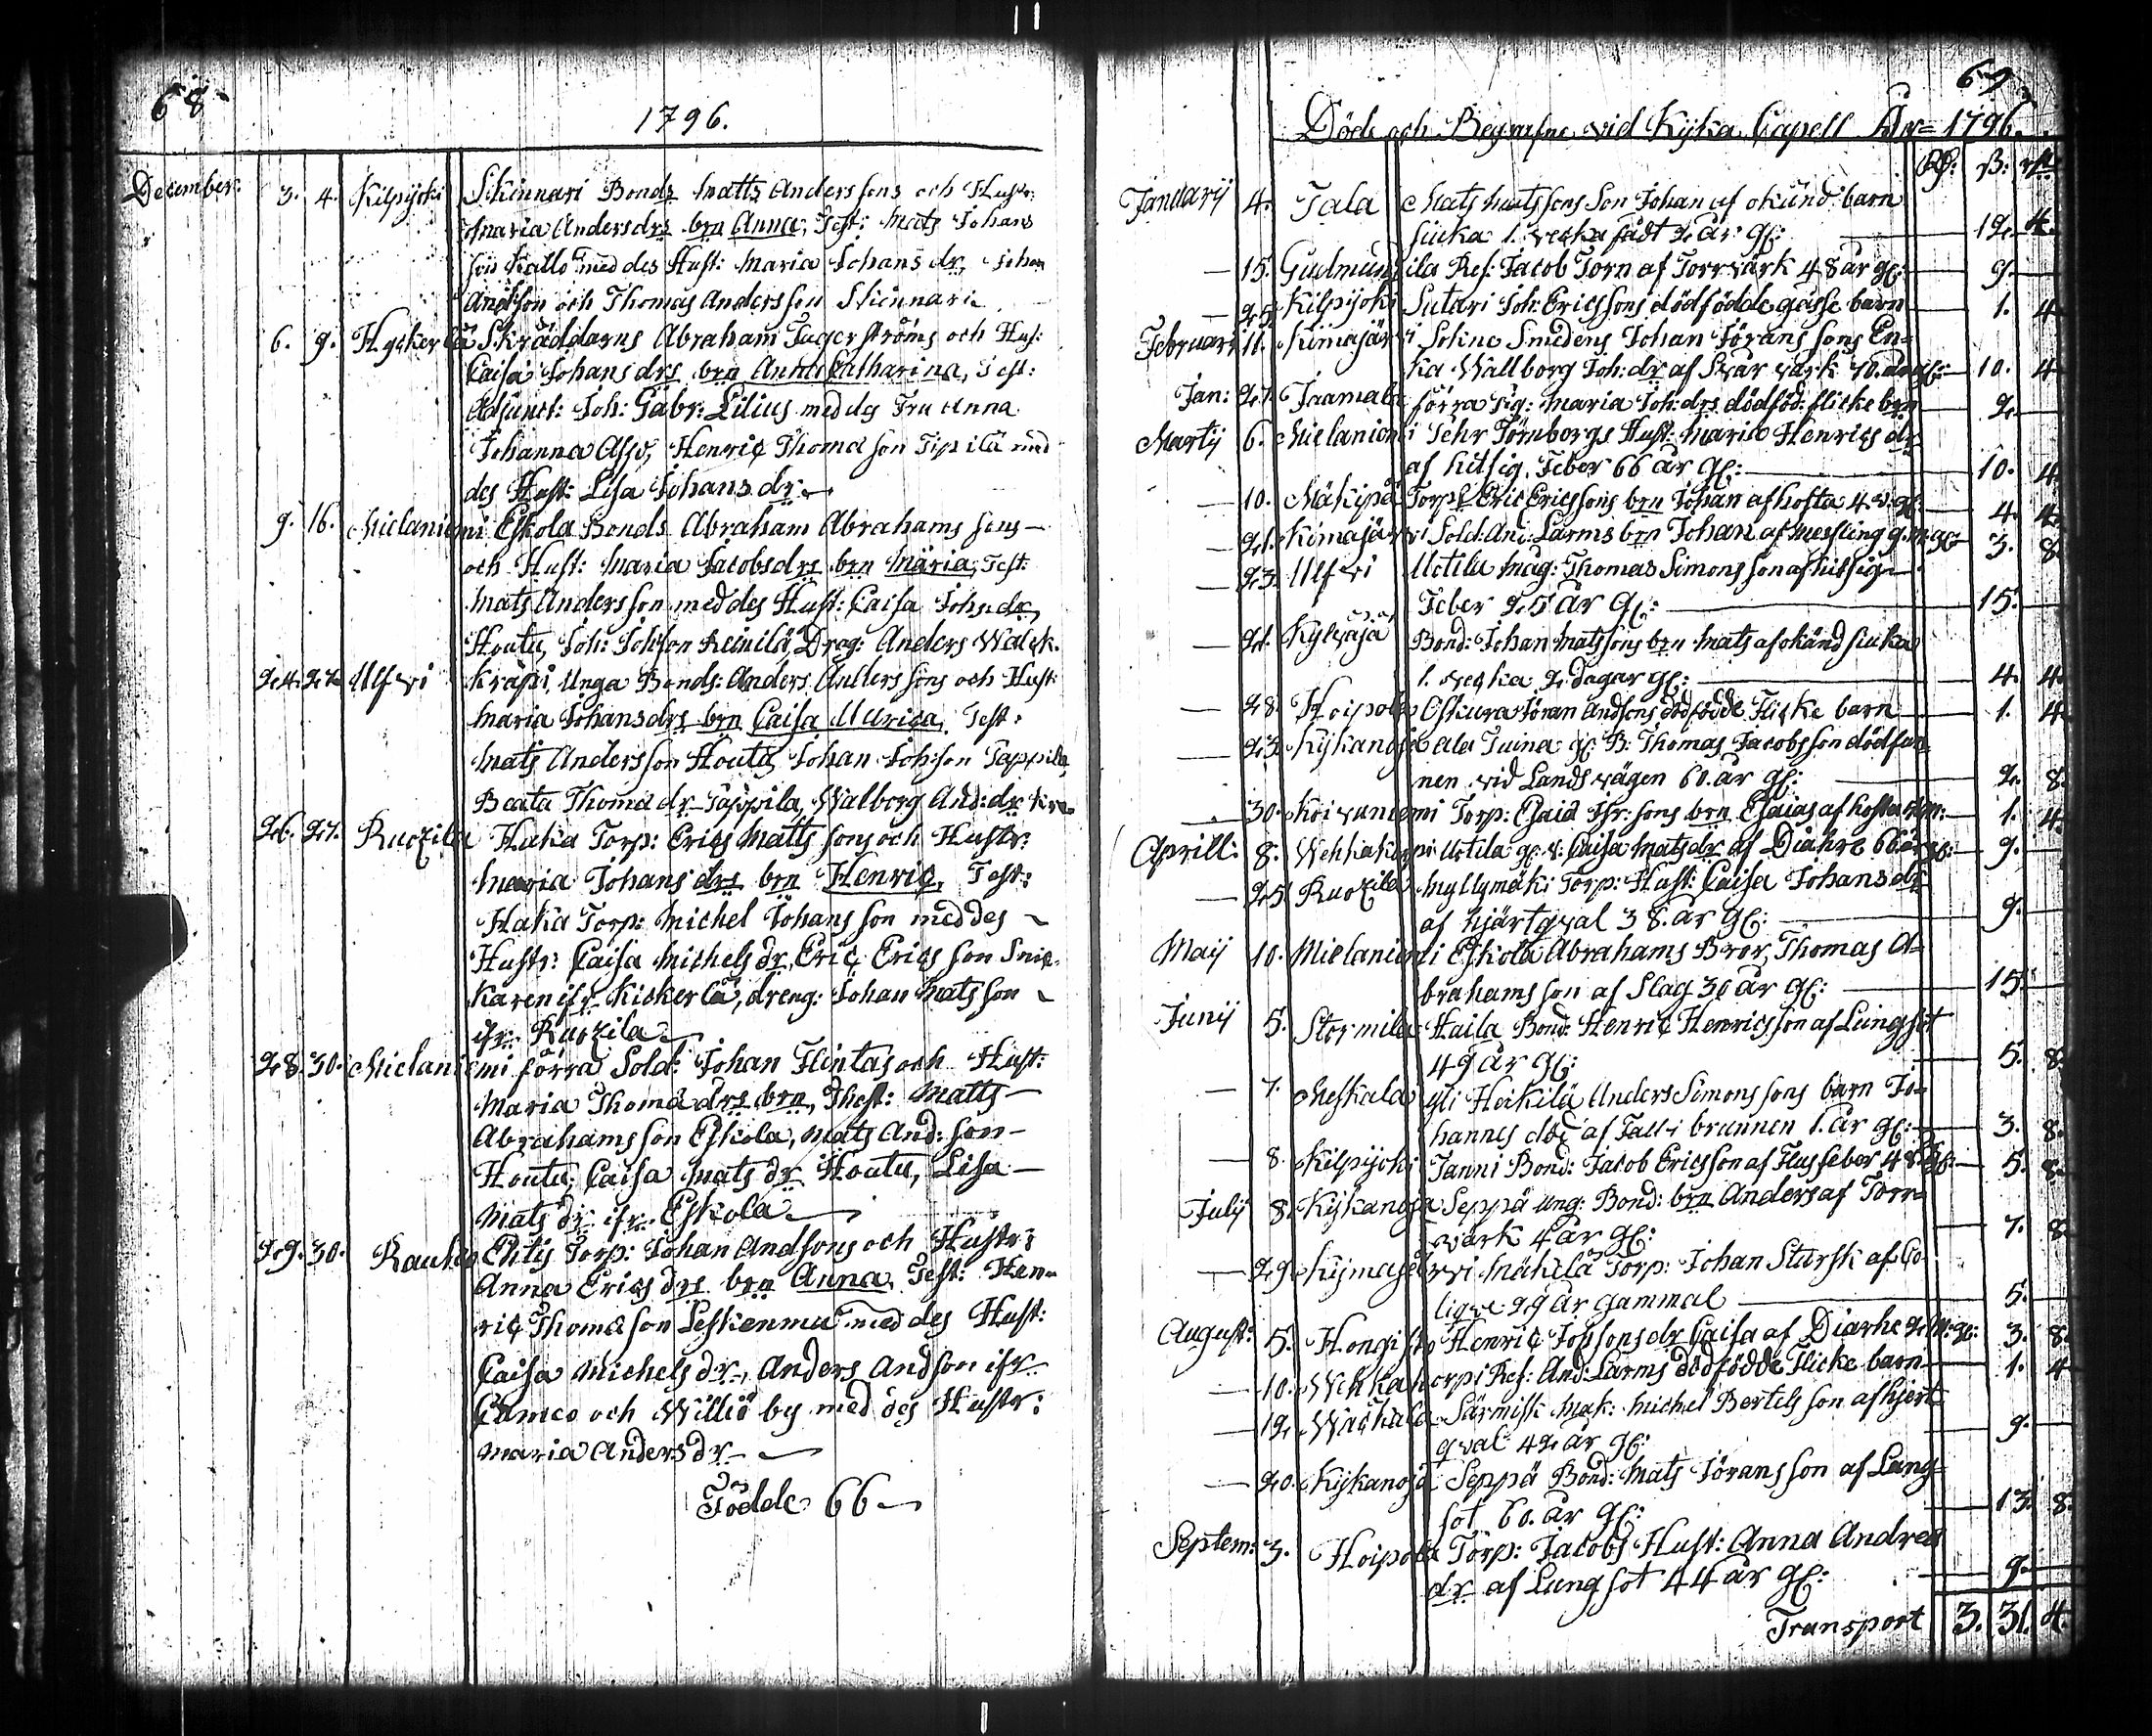 68
1796.
December. 3. 4. Kilpijoki Skinnari Bonds Matts Anderssons och Hustr:
Maria Andersdrs brn Anna, Test: Mats Johans
son Kallo med des Hust: Maria Johans dr, Johan
Andsson och Thomas Andersson Skinnari
6. 9. Hyckerlä Skräddarns Abraham Fagerströms och Hus:
Caisa Johans drs brn Anna Catharina, Test:
Adjunct: Joh: Gabr: Lilius med des Fru Anna
Johanna Assv, Henric Thomasson Tipilä med
des Hust: Lisa Johans dr.
9. 16. Mielaniemi Eskola Bonds Abraham Abrahams sons
och Hust: Maria Jacobsdrs brn Maria, Test:
Mats Andersson med des Hust: Caisa Johs dr,
Houtu, Joh: Johsson Reinilä, Drag: Anders Walck.
24. 27. Ulfvi Kräpi, Unga Bonds: Anders Anders sons och Hust:
Maria Johansdrs brn Caisa Ulrica, Test:
Mats Andersson Houtu, Johan Johsson Tappila,
Beata Thomæ dr Tappila, Walborg And: dr Krä
26. 27. Ruozila Haka Torp: Erics Matts sons och Hustr:
Maria Johans drs brn Henric, Test:
Haka Torp: Michel Johans son med des
Hustr: Caisa Michels dr, Eric Erics son Snic-
karen ifr Kickerlä, dreng: Johan Mats son
ifr: Ruozila
28. 30. Mielaniemi förra Sold: Johan Flintas och Hust:
Maria Thomæ drs brn, Thest: Matts
Abrahams son Eskola, Mats And: son
Houtu, Caisa Mats dr Houtu, Lisa
Mats dr ifr. Eskola
29. 30. Rautio Ehtis Torp: Johan Andsons och Hustr:
Anna Erics drs brn Anna, Test: Hen-
ric Thomæson Leskenmu med des Hust:
Caisa Michels dr, Anders Andson ifr
Cumeo och Williö by med des Hustr:
Maria Anders dr
Födde 66
69
Döde och Begrafne vid Kijka Capell År 1796.
Rd: ß: rst
Januarij 4. Tala Mats Matssons Son Johan af okänd barn
siuka 1. vecka fådt 2 år gl: 12. 4.
15. Gudmundila Ref: Jacob Torn af Torrvärk 48 år gl: 9.
25. Kilpijoki Sutari Joh: Ericssons dödfödde gosse barn 1. 4
Februari 11. Kiimajärvi Sokne Smedens Johan Jörans sons En-
ka Wallborg Joh: dr af Svår värk 70. år gl: 10. 4
Jan: 27. Jaamala förra Pig: Maria Joh: drs dödföd: flicke brn 2.
Martij 6. Mielaniemi Pehr Törnborgs Hust: Maria Henrics dr
af hitsig Feber 66 år gl: 10. 4.
10. Mäkipä Torp: Eric Ericssons brn Johan af hosta 4. v. gl: 4. 4.
21. Kimajärvi Sold: And: Larms brn Johan af Messling 9. m: gl: 3. 8
23. Ulfvi Uotila Mag: Thomas Simons son af hitsig
Feber 25 år gl: 15.
21. Kylväjä Bond: Johan Matssons brn Mats af okänd siuka
1. vecka 2 dagar gl: 4. 4.
28. Hoipola Oskura Jöran Andsons dödfödde Flicke barn 1. 4
23. Kijkanoja Ala Tuina gl: B. Thomas Jacobsson död fun
nen vid Landsvägen 60. år gl: 2. 8.
30. Koivuniemi Torp: Esaiæ Hr: sons brn Esaias af hosta m: 1. 4.
Aprill: 8. Wehkakorpi Uotila gl. v: Caisa Mats dr af Diahre 66 år gl: 9.
25. Ruozila Myllymäki Torp: Hust: Caisa Johans dr
af hjärtqval 38. år gl: 9.
Maij 10. Mielaniemi Eskola Abrahams Bror, Thomas A-
brahams son af Slag 30 år gl: 15.
Junij 5. Stormila Haila Bond: Henric Henrics son af Lungsot
49 år gl: 5. 8.
7. Meskala yli Heikilä Anders Simons sons barn Jo-
hannes död af Fall i brunnen 1. år gl: 3. 8.
8. Kilpijoki Janni Bond: Jacob Ericsson af Flussfeber 48 år gl: 5. 8.
Julij 8. Kijkanoja Seppä Ung: Bond: brn Anders af Torr-
värk 4 år gl: 7. 8
29. Kijmajärvi Mäkilä Torp: Johan Stursk af Co-
lique 29 år gammal 5.
August: 5. Hongisto Henric Johssons dr Caisa af Diarhe 2. m: gl: 3. 8.
10. Wehkakorpi Ref: And: Larms dödfödde Flicke barn 1. 4
12. Wächala Särmisk Mak: Michel Bertels son af hjert-
qval 42 år gl: 9.
20. Kijkanoja Seppä Bond: Mats Jörans son af Lung-
sot 60. år gl: 13. 8.
Septem: 3. Hoipola Torp: Jacobs Hust: Anna Andreæ
dr af Lungsot 44 år gl: 9.
Transport 3. 31. 4.